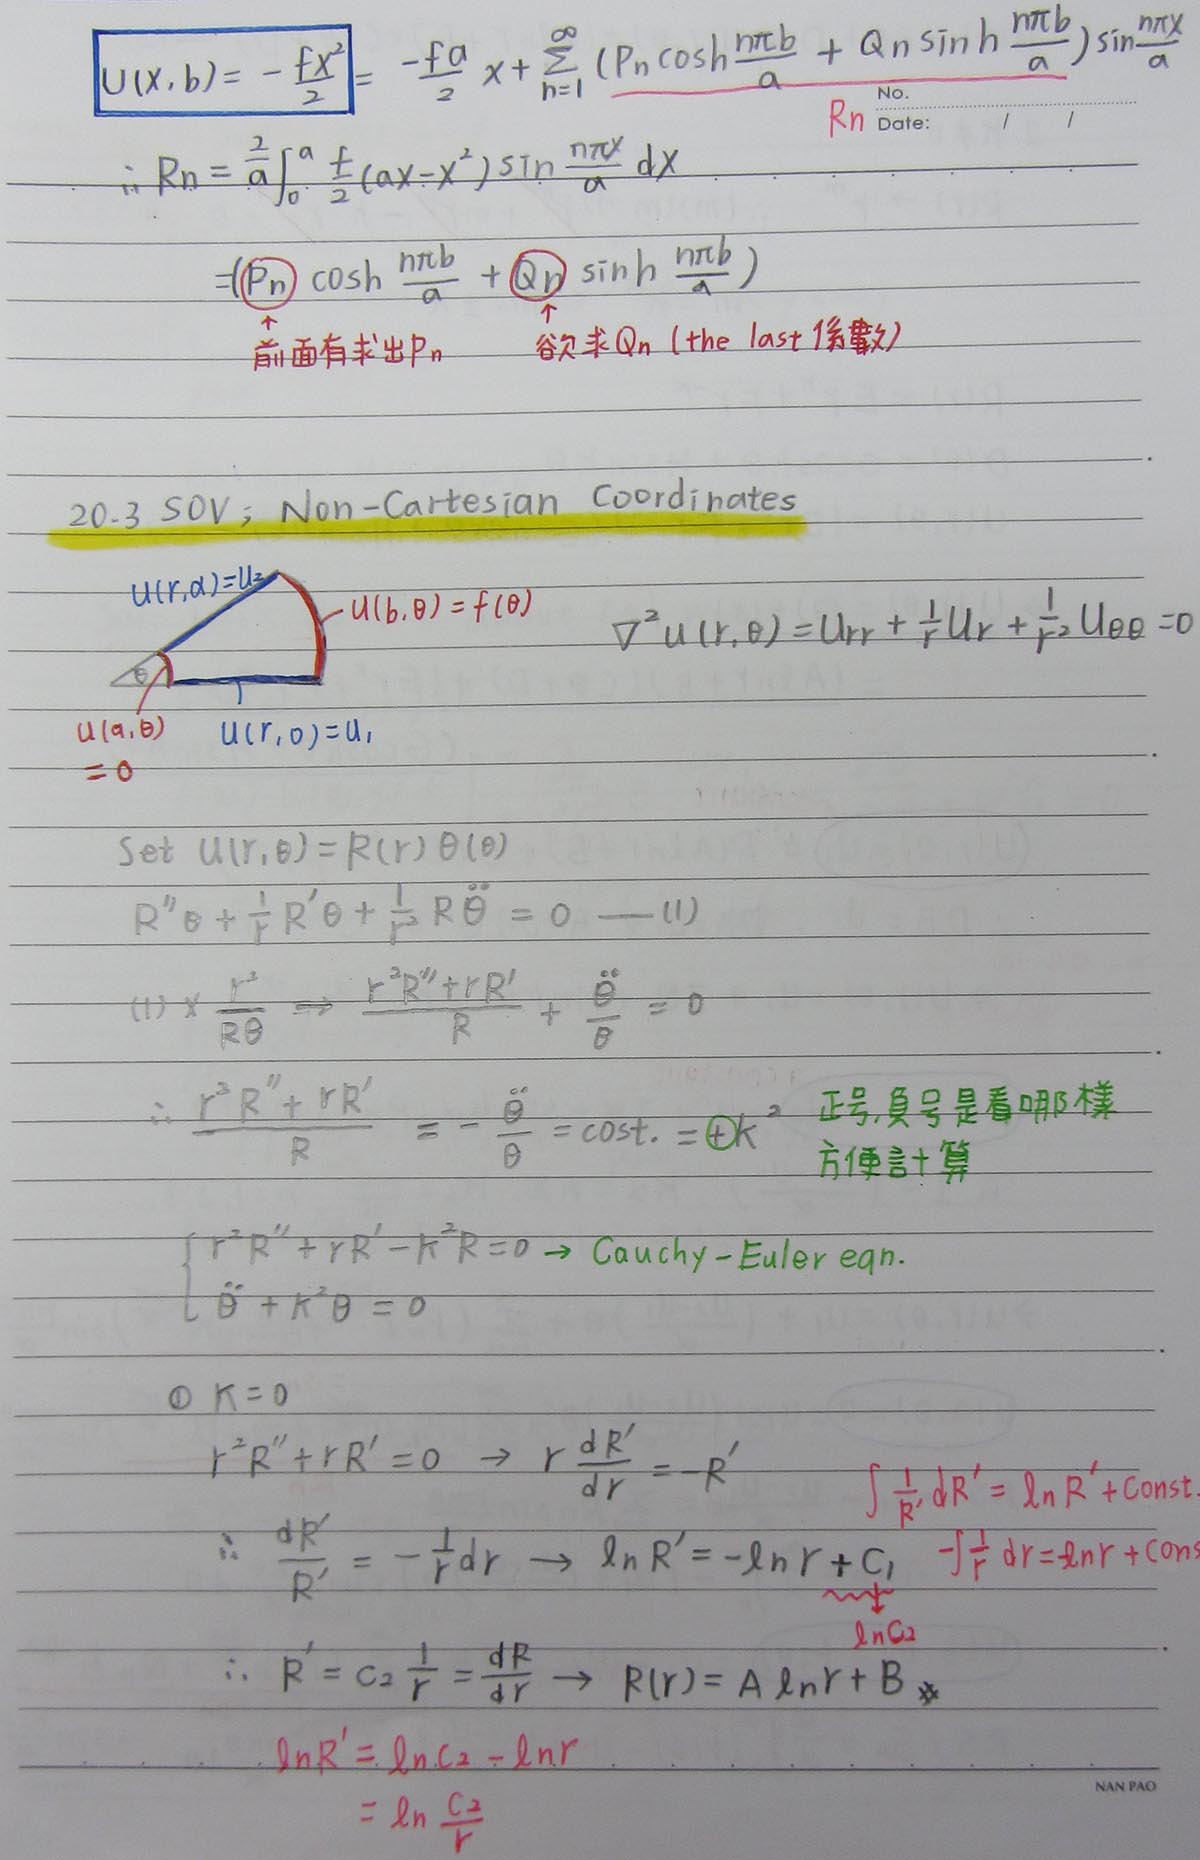 U(x,b) = -fx²/2 = -fa/2 x + ∑_{n=1}^{∞} (Pn cosh nπb/a + Qn sinh nπb/a) sin nπx/a
Rn
No.
Date: / /
∴ Rn = 2/a ∫₀ᵃ f/2 (ax-x²) sin nπx/a dx
=(Pn cosh nπb/a + Qn sinh nπb/a)
↑ ↑
前面有求出Pn 欲求Qn (the last 係數)
20-3 SOV; Non-Cartesian Coordinates
U(r,α)=U₂
U(b,θ)=f(θ)
∇²u(r,θ)=Urr+1/r Ur+1/r² Uθθ=0
θ
U(a,θ)
=0
U(r,0)=U₁
Set U(r,θ)=R(r)θ(θ)
R″θ+1/r R′θ+1/r² Rθ̈ = 0 —(1)
(1) × r²/Rθ ⇒ r²R″+rR′/R + θ̈/θ = 0
∴ r²R″+rR′/R = -θ̈/θ = cost. = ⊕k²
正号,負号是看哪樣
方便計算
{ r²R″+rR′-k²R=0 → Cauchy-Euler eqn.
θ̈+k²θ=0
① K=0
r²R″+rR′=0 → r dR′/dr = -R′
∫1/R′ dR′ = ln R′+Const.
∴ dR′/R′ = -1/r dr → ln R′=-ln r + C₁
-∫1/r dr=-lnr+Cons
lnC₂
∴ R′ = C₂ 1/r = dR/dr → R(r)= A lnr+B ※
lnR′= lnC₂ - lnr
= ln C₂/r
NAN PAO